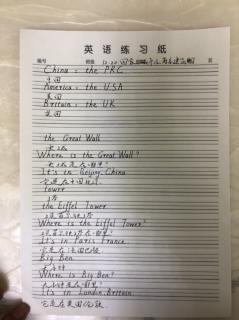 英 语 练 习 纸
编号 班级 12.20 国家 页
China : the PRC
中国
America : the USA
美国
Britain : the UK
英国
the Great Wall
长城
Where is the Great Wall?
长城是在哪里?
It's in Beijing. China
它是在中国北京
tower
塔
the Eiffel Tower
埃菲尔铁塔
Where is the Eiffel Tower?
埃菲尔铁塔是在哪里?
It's in Paris France.
它是在法国巴黎
Big Ben
大本钟
Where is Big Ben?
大本钟是在哪里?
It's in London. Britain.
它是在英国伦敦